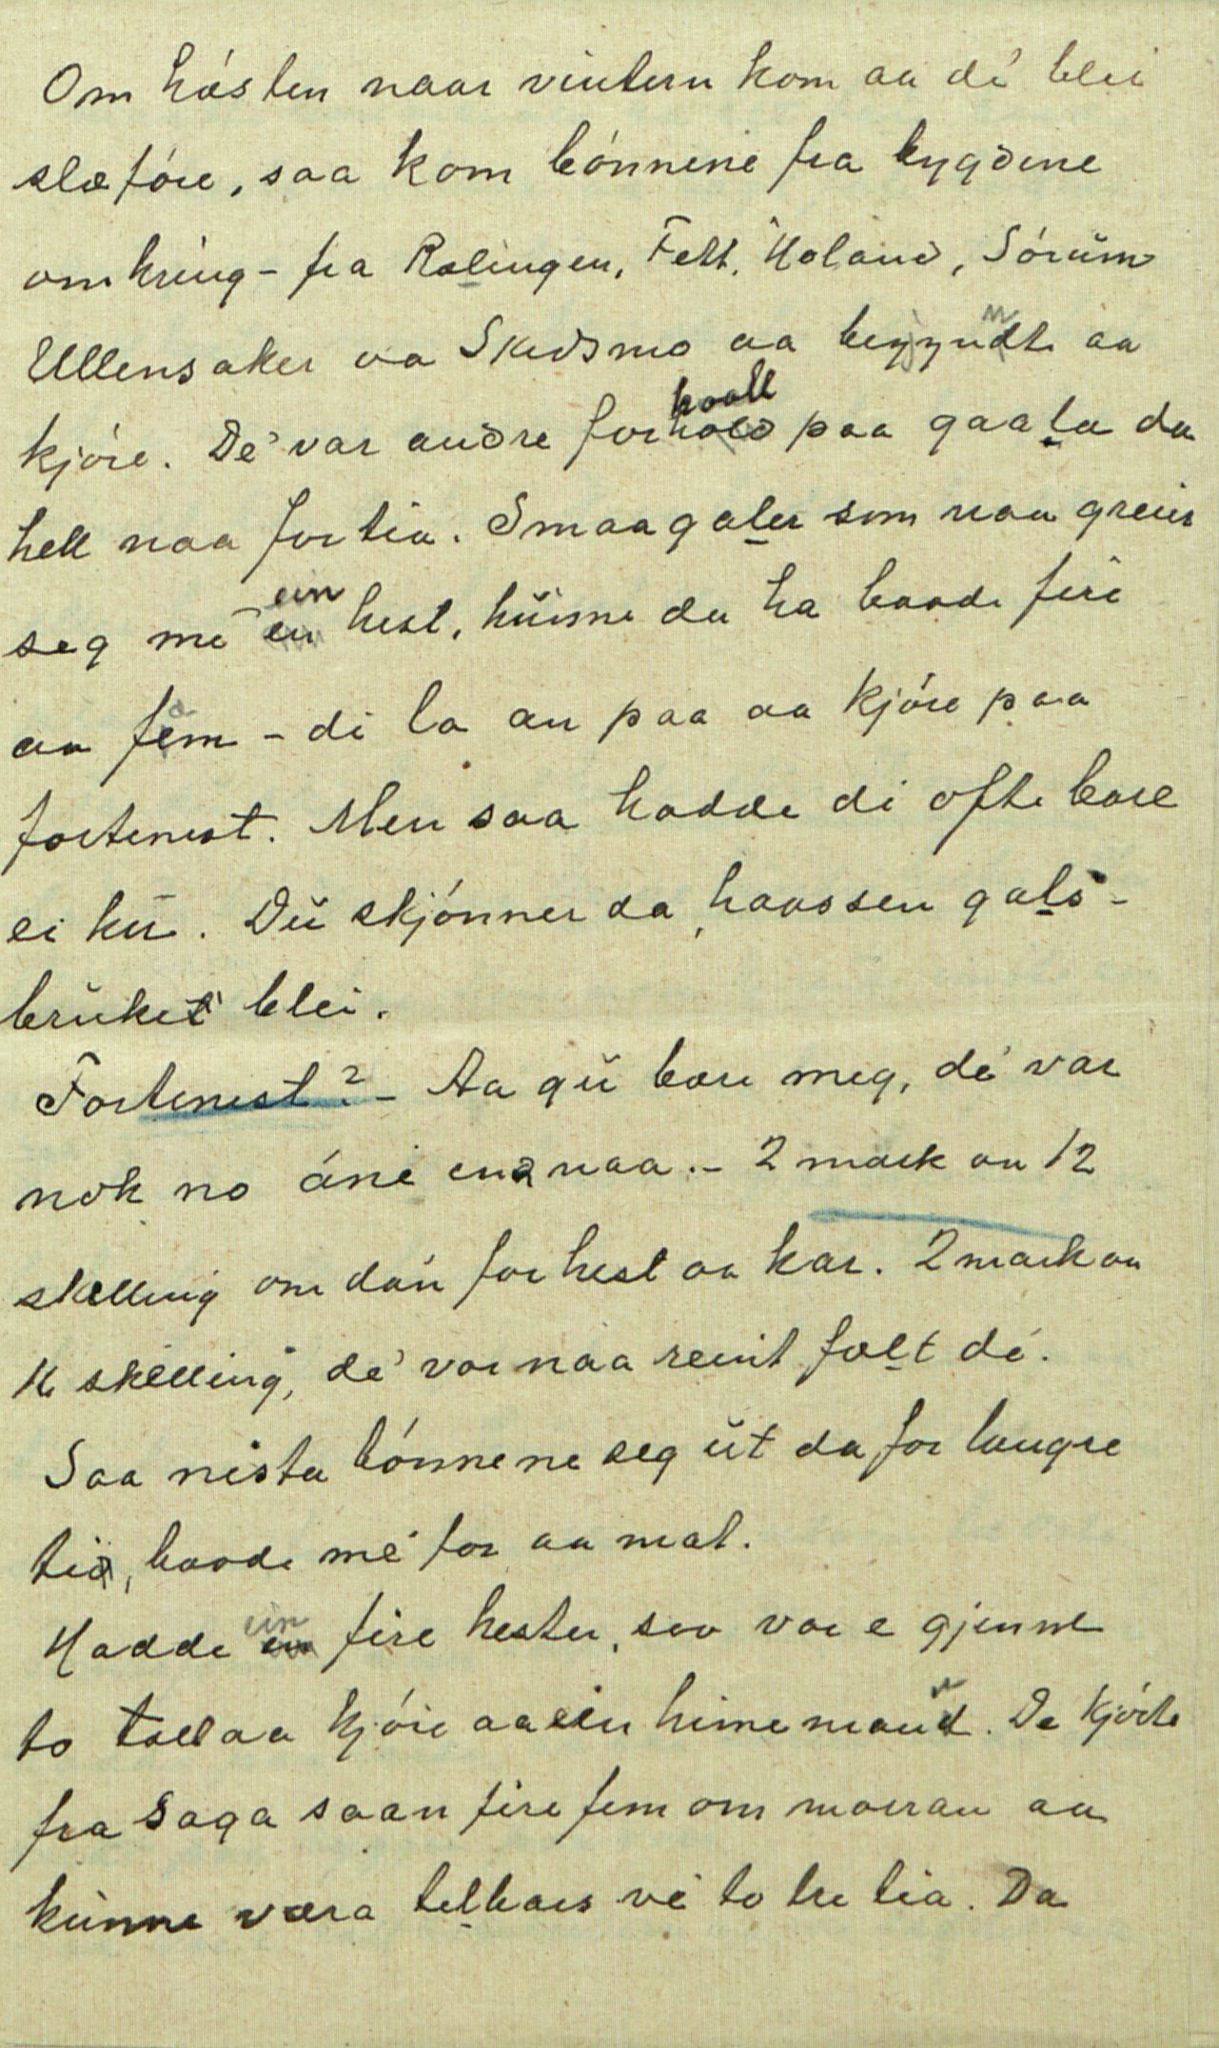 Om hósten naar vintern kom aa dé blei
slæfóre, saa kom bónnene fra bygdene
omkring - fra Rælingen, Fett, Hóland, Sórŭm
Ullensaker aa Skedsmo aa begynte aa
kjóre. Dé var andre forhaall paa gaala da
hell naa for tia. Smaagaler som naa greier
seg mé ein hest, kŭnne da ha baade fire
aa fæm - di la an paa aa kjóre paa
fortenest. Men saa hadde di ofte bare
ei kŭ. Dŭ skjónner da haassen gals-
brŭket blei.
Fortenest? - Aa gŭ bære meg, dé var
nok no áné enn naa. - 2 mark aa 12
skelling om dan for hest aa kar. 2 mark aa
16 skelling, dé var naa reint fælt dé.
Saa nista bónnene seg ŭt da for laangre
tid, baade mé for aa mat.
Hadde ein fire hester, saa var e gjennt
to tell aa kjóre aa ein himemann. De kjórte
fra Saga saan fire fem om morran aa
kŭnne væra telbars vé to tre tia. Da